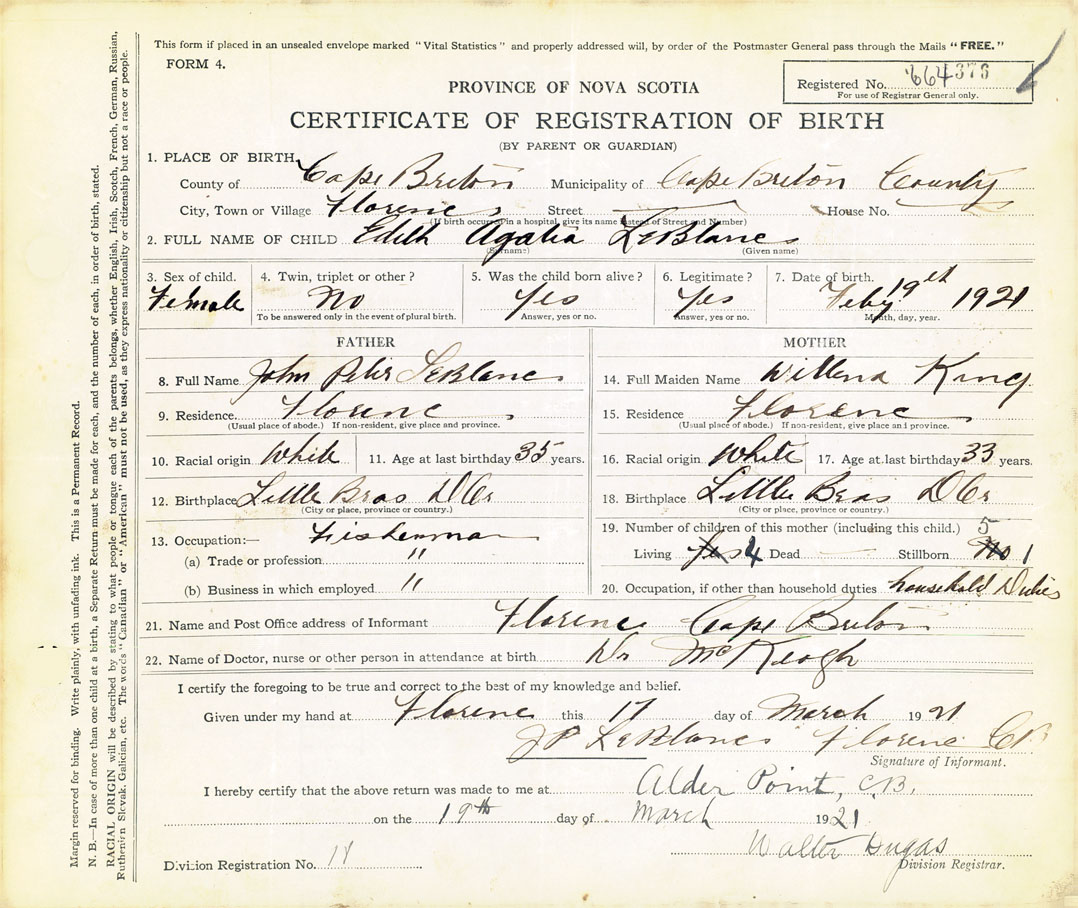 This form if placed in an unsealed envelope marked "Vital Statistics" and properly addressed will, by order of the Postmaster General pass through the Mails "FREE."
FORM 4.
Registered No. 664376
For use of Registrar General only.
PROVINCE OF NOVA SCOTIA
CERTIFICATE OF REGISTRATION OF BIRTH
(BY PARENT OR GUARDIAN)
1. PLACE OF BIRTH,
County of Cape Breton Municipality of Cape Breton County
City, Town or Village Florence Street House No.
(If birth occurs in a hospital, give its name instead of Street and Number)
2. FULL NAME OF CHILD Edith Agatia LeBlanc
(Surname) (Given name)
3. Sex of child. 4. Twin, triplet or other? 5. Was the child born alive? 6. Legitimate? 7. Date of birth.
Female No Yes Yes Feby 19th 1921
To be answered only in the event of plural birth. Answer, yes or no. Answer, yes or no. Month, day, year.
FATHER
8. Full Name John Peter LeBlanc
9. Residence. Florence
(Usual place of abode.) If non-resident, give place and province.
10. Racial origin White 11. Age at last birthday 35 years.
12. Birthplace Little Bras D'Or
(City or place, province or country.)
13. Occupation:— Fisherman
(a) Trade or profession "
(b) Business in which employed "
MOTHER
14. Full Maiden Name Willena King
15. Residence Florence
(Usual place of abode.) If non-resident, give place and province.
16. Racial origin White 17. Age at last birthday 33 years.
18. Birthplace Little Bras D'Or
(City or place, province or country.)
19. Number of children of this mother (including this child.) 5
Living Yes 4 Dead Stillborn No 1
20. Occupation, if other than household duties household Duties
21. Name and Post Office address of Informant Florence Cape Breton
22. Name of Doctor, nurse or other person in attendance at birth Dr McKeogh
I certify the foregoing to be true and correct to the best of my knowledge and belief.
Given under my hand at Florence this 17 day of March 1921
J P LeBlanc Florence C B
Signature of Informant.
I hereby certify that the above return was made to me at Alder Point, C.B.
on the 19th day of March 1921
Walter Dugas
Division Registrar.
Division Registration No.
Margin reserved for binding. Write plainly, with unfading ink. This is a Permanent Record.
N. B.—In case of more than one child at a birth, a Separate Return must be made for each, and the number of each, in order of birth, stated.
RACIAL ORIGIN will be described by stating to what people or tongue each of the parents belongs, whether English, Irish, Scotch, French, German, Russian,
Ruthenian Slovak, Galician, etc. The words "Canadian" or "American" must not be used, as they express nationality or citizenship but not a race or people.